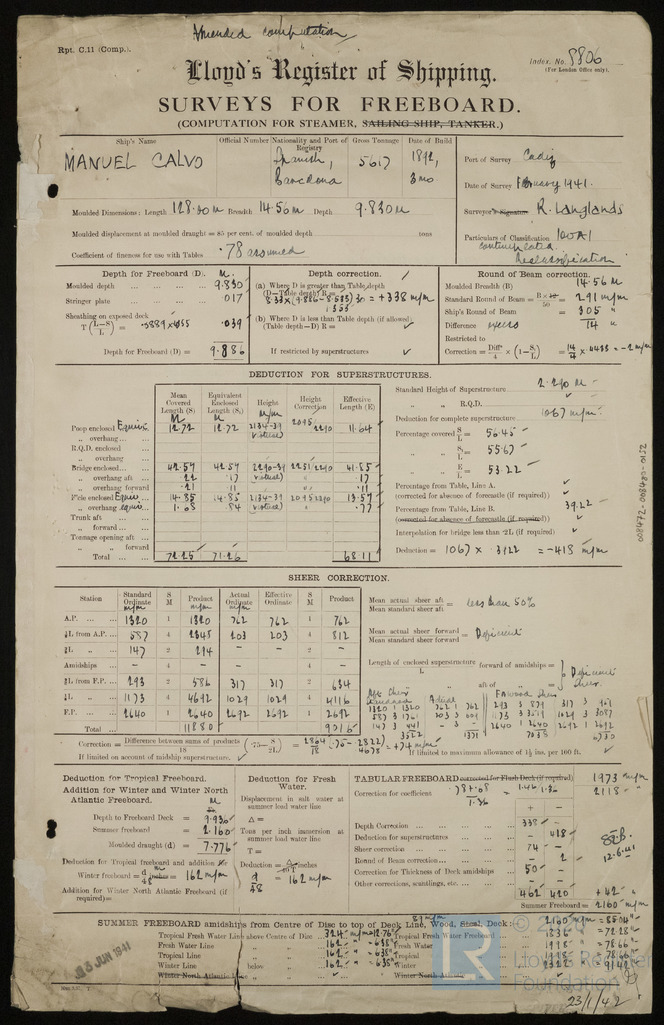 Amended computation
Rpt. C.11 (Comp.).
Index. No. 8806
(For London Office only).
Lloyd's Register of Shipping.
SURVEYS FOR FREEBOARD.
(COMPUTATION FOR STEAMER, SAILING SHIP, TANKER.)
Ship's Name
Official Number
Nationality and Port of Registry
Gross Tonnage
Date of Build
MANUEL CALVO
Spanish, Barcelona
5617
1892, 3 mo
Port of Survey Cadiz
Date of Survey February 1941.
Surveyor's Signature R. Langlands
Particulars of Classification 100A1
contemplated
Reclassification
Moulded Dimensions: Length 128.00 M Breadth 14.56 M Depth 9.830 M
Moulded displacement at moulded draught = 85 per cent. of moulded depth tons
Coefficient of fineness for use with Tables .78 assumed
Depth for Freeboard (D). M.
Moulded depth 9.830
Stringer plate .017
Sheathing on exposed deck
T(L-S/L) = .039
Depth for Freeboard (D) = 9.886
Depth correction.
(a) Where D is greater than Table depth
(D—Table depth) R =
= +338 m/m
(b) Where D is less than Table depth (if allowed)
(Table depth—D) R =
If restricted by superstructures
Round of Beam correction.
Moulded Breadth (B) 14.56 M
Standard Round of Beam = B×12/50 = 291 m/m
Ship's Round of Beam = 305 "
Difference excess 14 "
Restricted to
Correction = Diffce/4 × (1-S/L) = 14/4 × .4433 = -2 m/m
DEDUCTION FOR SUPERSTRUCTURES.
Mean Covered Length (S)
Equivalent Enclosed Length (S₁)
Height
Height Correction
Effective Length (E)
Poop enclosed Equiv. 12.72 12.72 2134.39 virtual 2095 2290 11.64
„ overhang
R.Q.D. enclosed
„ overhang
Bridge enclosed 42.57 42.57 41.85
„ overhang aft .22 .17 virtual .17
„ overhang forward .21 .11 .11
F'cle enclosed Equiv. 14.85 14.85 2134.39 2095 2290 13.57
„ overhang equiv. 1.68 .84 virtual .77
Trunk aft
„ forward
Tonnage opening aft
„ forward
Total 72.25 71.26 68.11
Standard Height of Superstructure 2.290 M
„ „ R.Q.D.
Deduction for complete superstructure 1067 m/m
Percentage covered S/L = 56.45
„ S₁/L = 55.67
„ E/L = 53.22
Percentage from Table, Line A.
(corrected for absence of forecastle (if required))
Percentage from Table, Line B. 39.22
(corrected for absence of forecastle (if required))
Interpolation for bridge less than .2L (if required)
Deduction = 1067 × .3922 = -418 m/m
008472-008480-0152
SHEER CORRECTION.
Station
Standard Ordinate
S M
Product
Actual Ordinate
Effective Ordinate
S M
Product
A.P. 1320 1 1320 762 762 1 762
⅙L from A.P. 587 4 2345 203 203 4 812
⅓L „ 147 2 294 - - 2 -
Amidships - 4 - 4 -
⅓L from F.P. 293 2 586 317 317 2 634
⅙L „ 1173 4 4692 1029 1029 4 4116
F.P. 2640 1 2640 2692 2692 1 2692
Total 11880 9016
Mean actual sheer aft / Mean standard sheer aft = less than 50%
Mean actual sheer forward / Mean standard sheer forward = Deficient
Length of enclosed superstructure / L forward of amidships =
„ aft of „ =
Deficient sheer.
Aft Sheer
Standard
Actual
Forward Sheer
1320 1 1320
762 1 762
293 3 879
317 3 951
587 3 1761
203 3 609
1029 3 3087
147 3 441
- 3 -
2640 1 2640
2692 1 2692
3522
1371
7038
6730
Correction = Difference between sums of products/18 (.75 - S/2L) = 2864/18 (.75 - .2822) = +74 m/m
If limited on account of midship superstructure.
If limited to maximum allowance of 1½ ins. per 100 ft.
Deduction for Tropical Freeboard.
Addition for Winter and Winter North Atlantic Freeboard.
M
Depth to Freeboard Deck = 9.936
Summer freeboard = 2.160
Moulded draught (d) = 7.776
Deduction for Tropical freeboard and addition for
Winter freeboard = d/48 = 162 m/m
Addition for Winter North Atlantic Freeboard (if required) =
Deduction for Fresh Water.
Displacement in salt water at summer load water line
Δ =
Tons per inch immersion at summer load water line
T =
Deduction = Δ/40T inches
d/48 = 162 m/m
TABULAR FREEBOARD corrected for Flush Deck (if required) 1973 m/m
Correction for coefficient .78+.68/1.36 = 1.46/1.36 2118 "
+ -
Depth Correction 338 -
Deduction for superstructures - 418
Sheer correction 74 -
Round of Beam correction - 2
Correction for Thickness of Deck amidships 50 -
Other corrections, scantlings, etc.
462 420 +42 "
Summer Freeboard = 2160 m/m
12.6.41
SUMMER FREEBOARD amidships from Centre of Disc to top of Deck Line, Wood, Steel, Deck: 2160 m/m = 8504"
Tropical Fresh Water Line above Centre of Disc 324 m/m = 12.76" Tropical Fresh Water Freeboard 1836 " = 7228"
Fresh Water Line „ 162 " = 638" Fresh Water „ 1998 " = 7866"
Tropical Line „ 162 " = 638" Tropical „ 1998 " = 7866"
Winter Line below „ 162 " = 638" Winter „ 2322 " = 9142"
Winter North Atlantic Line „ Winter North Atlantic „
3 JUN 1941
23/1/42
© 2020
LR
Lloyd's Register
Foundation